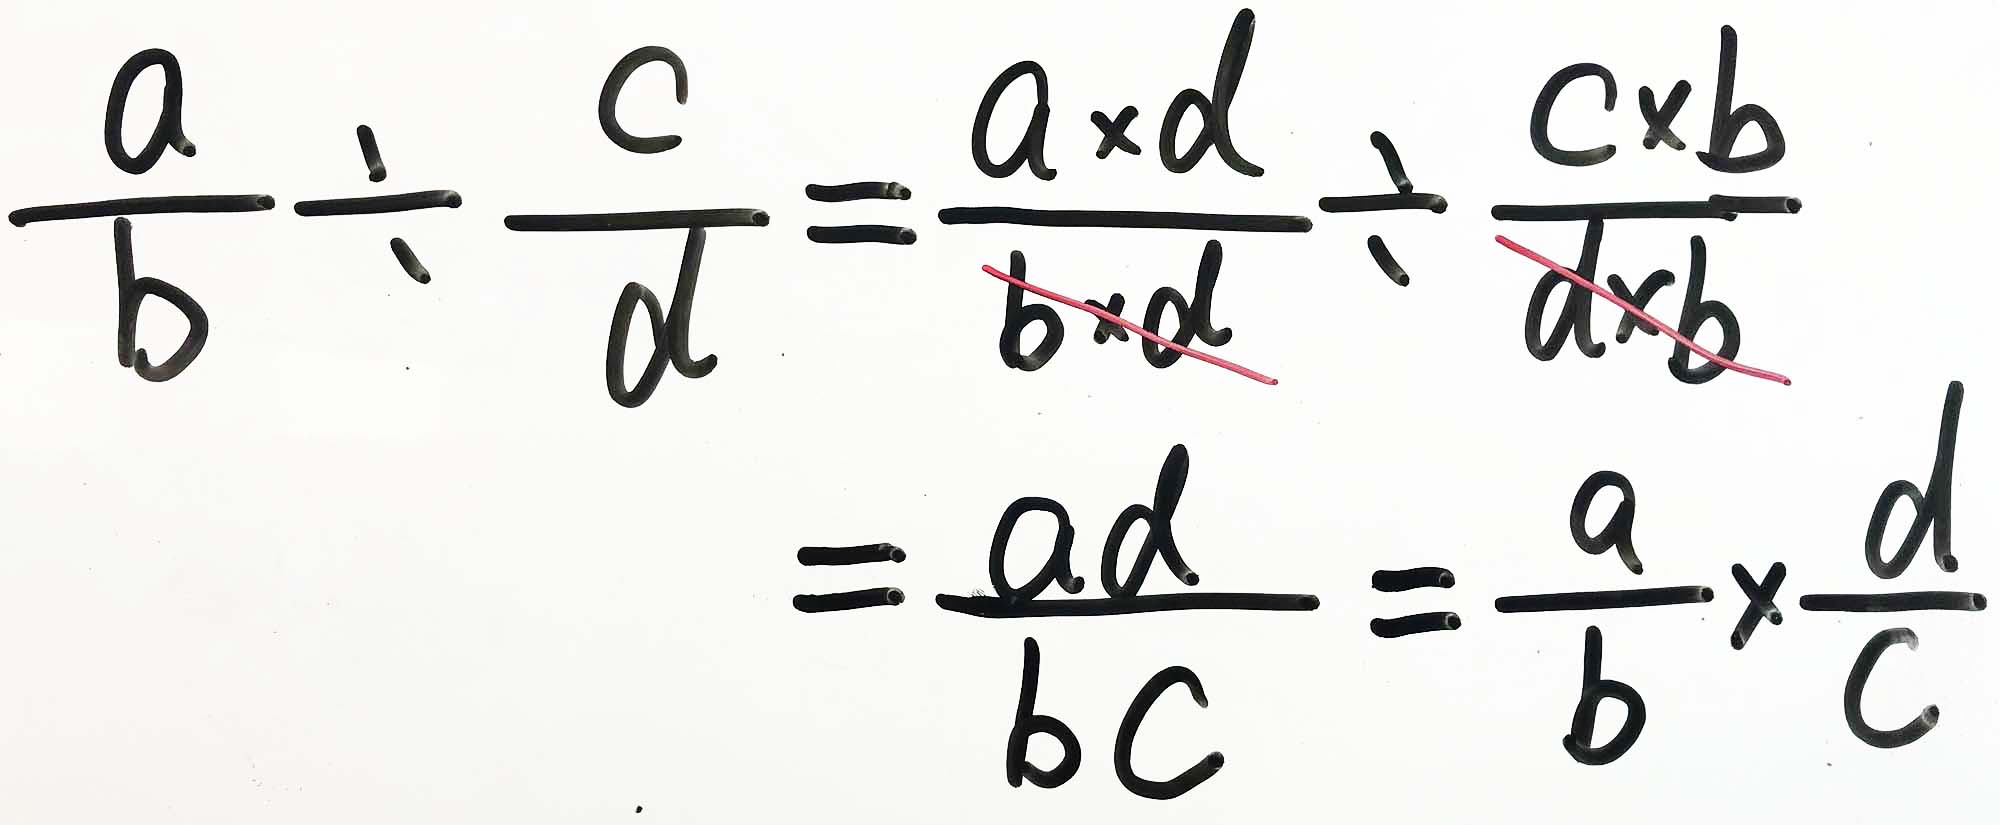 a/b ÷ c/d = a×d/b×d ÷ c×b/d×b
= ad/bc = a/b × d/c